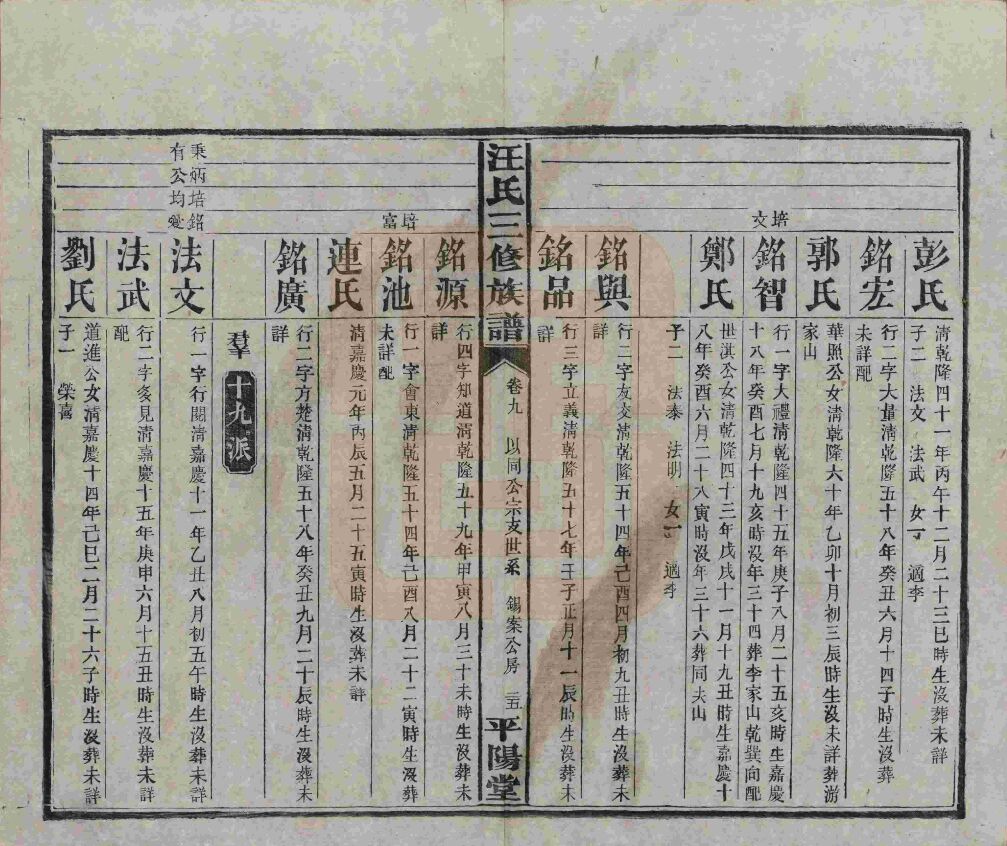 彭氏
清乾隆四十一年丙午十二月二十三巳時生沒葬未詳
子二 法文 法武 女一 適李
銘宏
行二字大量清乾隆五十八年癸丑六月十四子時生沒葬
未詳配
郭氏
華照公女清乾隆六十年乙卯十月初三辰時生沒未詳葬游
家山
培文
銘智
行一字大禮清乾隆四十五年庚子八月二十五亥時生嘉慶
十八年癸酉七月十九亥時沒年三十四葬李家山乾巽向配
鄭氏
世淇公女清乾隆四十三年戊戌十一月十九丑時生嘉慶十
八年癸酉六月二十八寅時沒年三十六葬同夫山
子二 法泰 法明 女一 適李
銘與
行二字友交清乾隆五十四年己酉四月初九丑時生沒葬未
詳
銘品
行三字立義清乾隆五十七年壬子正月十一辰時生沒葬未
詳
汪氏三修族譜
卷九 以同公宗支世系 錫案公房 三五
平陽堂
銘源
行四字知道清乾隆五十九年甲寅八月三十未時生沒葬未
詳
培富
銘池
行一字會東清乾隆五十四年己酉八月二十二寅時生沒葬
未詳配
連氏
清嘉慶元年丙辰五月二十五寅時生沒葬未詳
銘廣
行二字方楚清乾隆五十八年癸丑九月二十辰時生沒葬未
詳
羣 十九派
秉炳培銘
有公均
法文
行一字行閱清嘉慶十一年乙丑八月初五午時生沒葬未詳
法武
行二字多見清嘉慶十五年庚申六月十五丑時生沒葬未詳
配
劉氏
道進公女清嘉慶十四年己巳二月二十六子時生沒葬未詳
子一 榮喜